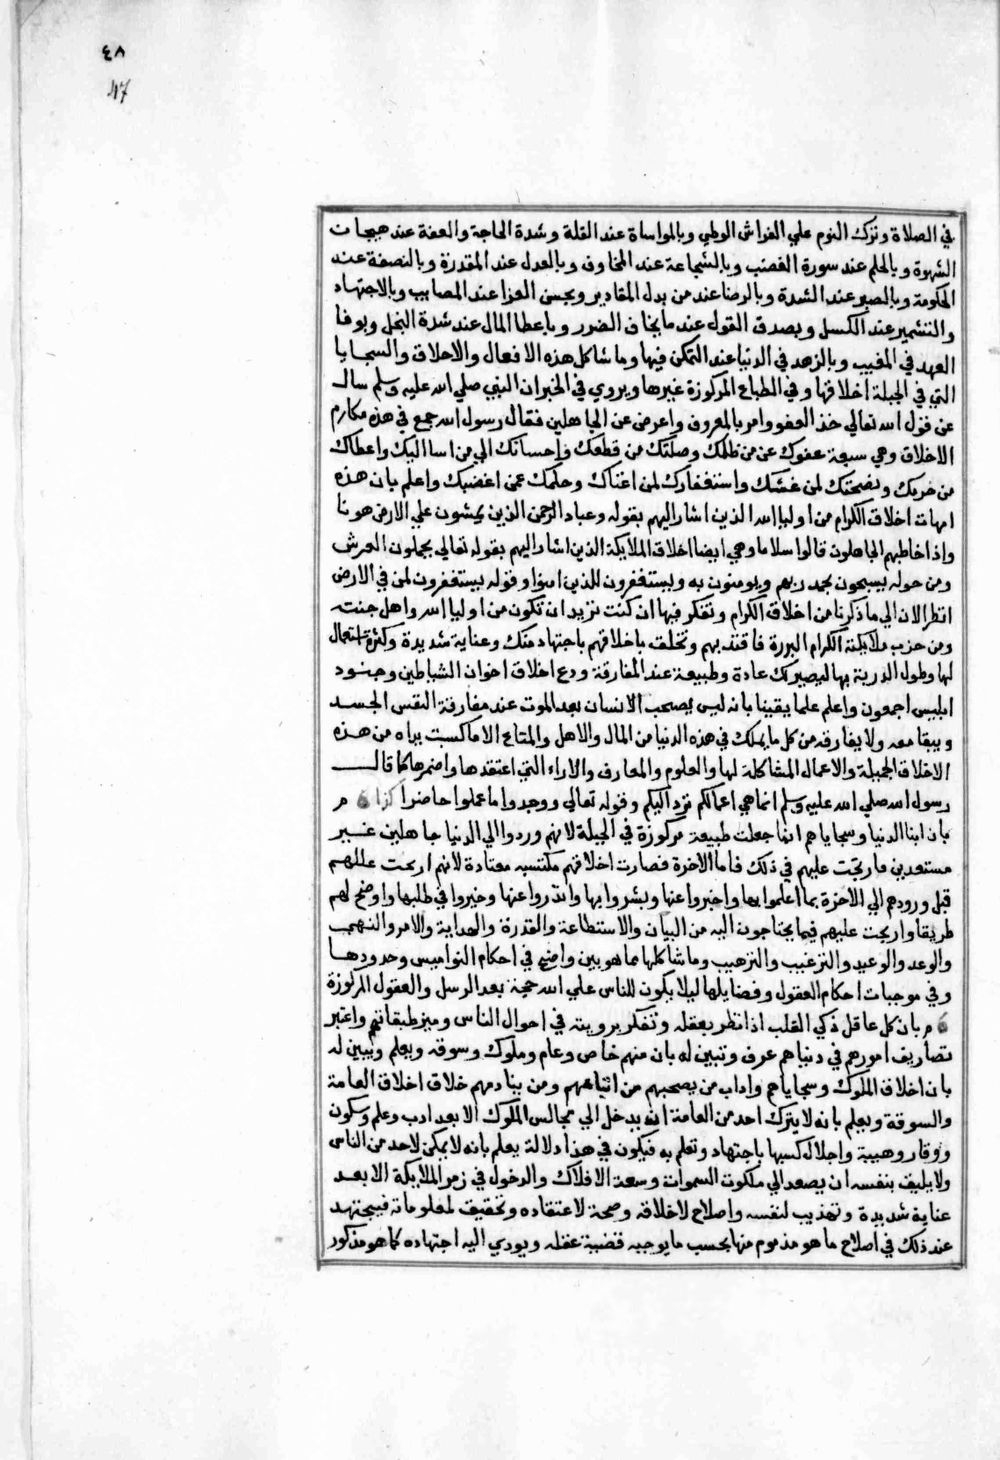 ٤٨
47
في الصلاة وترك النوم علي الفراش الوطي وبالمواساة عند القلة وشدة الحاجة والعفة عند هيجان
الشهوة وبالحلم عند سورة الغضب وبالشجاعة عند المخاوف وبالعدل عند المقدرة وبالنصفة عند
الحكومة وبالصبر عند الشدة وبالرضا عند من بدل المقادير وبحسن العزا عند المصايب وبالاجتهاد
والتشمير عند الكسل وبصدق القول عند ما يخاف الضرر وباعطا المال عند شدة البخل وبوفا
العهد في المغيب وبالزهد في الدنيا عند التمكن فيها وما شاكل هذه الافعال والاخلاق والسجايا
التي في الجبلة اخلاقها وفي الطباع المركوزة غيرها ويروي في الخبر ان النبي صلي الله عليه وسلم سال
عن قول الله تعالي خذ العفو وامر بالمعروف واعرض عن الجاهلين فقال رسول الله جمع في هذه مكارم
الاخلاق وهي سبعة عفوك عن من ظلمك وصلتك من قطعك واحسانك الي من اسا اليك واعطاك
من حرمك ونصحتك لمن غشك واستغفارك لمن اغتابك وحلمك عمن اغضبك واعلم بان هذه
امهات اخلاق الكرام من اوليا الله الذين اشار اليهم بقوله وعباد الرحمن الذين يمشون علي الارض هونا
واذا خاطبهم الجاهلون قالوا سلاما وهي ايضا اخلاق الملايكة الذين اشار اليهم بقوله تعالي يحملون العرش
ومن حوله يسبحون بحمد ربهم ويومنون به ويستغفرون للذين امنوا وقوله يستغفرون لمن في الارض
انظر الان الي ما ذكرنا من اخلاق الكرام وتفكر فيها ان كنت تريد ان تكون من اوليا الله واهل جنته
ومن حزب ملايكته الكرام البررة فاقتد بهم وتخلق باخلاقهم باجتهاد منك وعناية شديدة وكثرة استعمال
لها وطول الدربة بها ليصير لك عادة وطبيعة عند المفارقة ودع اخلاق اخوان الشياطين وجنود
ابليس اجمعون واعلم علما يقينا بانه ليس يصحب الانسان بعد الموت عند مفارقة النفس الجسد
ويبقا معه ولا يفارقه من كل ما يملك في هذه الدنيا من المال والاهل والمتاع الا ما كسبت يداه من هذه
الاخلاق الجميلة والاعمال المشاكلة لها والعلوم والمعارف والاراء التي اعتقدها واضمرها كما قال
رسول الله صلي الله عليه وسلم انما هي اعمالكم ترد اليكم وقوله تعالي ووجدوا ما عملوا حاضرا
بان ابنا الدنيا وسجاياهم انما جعلت طبيعة مركوزة في الجبلة لانهم وردوا الي الدنيا جاهلين غير
مستعدين فازيحت عليهم في ذلك فاما الاخرة فصارت اخلاقهم مكتسبه معتادة لانهم ازيحت عللهم
قبل ورودهم الي الاخرة بما اعلموا بها واخبروا عنها وبشروا بها وانذروا عنها وخيروا في طلبها واوضح لهم
طريقا وازيحت عليهم فيما يحتاجون اليه من البيان والاستطاعة والقدرة والهداية والامر والنهي
والوعد والوعيد والترغيب والترهيب وما شاكلها مما هو بين واضح في احكام النواميس وحدودها
وفي موجبات احكام العقول وفضايلها ليلا يكون للناس علي الله حجة بعد الرسل والعقول المركوزة
بان كل عاقل ذكي القلب اذا نظر بعقله وتفكر برويته في احوال الناس وميز طبقاتهم واعتبر
تصاريف امورهم في دنياهم عرف وتبين له بان منهم خاص وعام وملوك وسوقه ويعلم ويتبين له
بان اخلاق الملوك وسجاياهم واداب من يصحبهم من اتباعهم ومن ينادمهم خلاق اخلاق العامة
والسوقة ويعلم بانه لا يترك احد من العامة انه يدخل الي مجالس الملوك الا بعد ادب وعلم وسكون
ووقار وهيبة واجلال كسبها باجتهاد وتعلم به فيكون في هذا دلالة يعلم بانه لا يمكن لاحد من الناس
ولا يليق بنفسه ان يصعد الي ملكوت السموات وسعة الافلاك والدخول في زمر الملايكة الا بعد
عناية شديدة وتهذيب لنفسه واصلاح لاخلاقه وصحة لاعتقاده وتحقيق لمعلوماته فيجتهد
عند ذلك في اصلاح ما هو مذموم منها بحسب ما يوجبه قضية عقله ويودي اليه اجتهاده كما هو مذكور